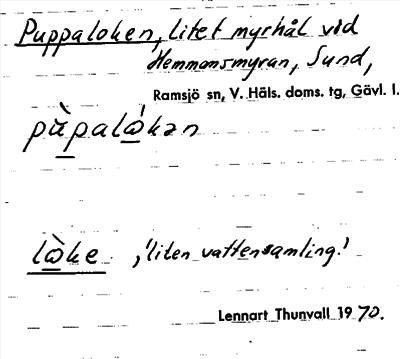 Puppaloken, litet myrhål vid
Hemmansmyran, Sund,
Ramsjö sn, V. Häls. doms. tg, Gävl. l.
pàpalákən
làke, 'liten vattensamling.'
Lennart Thunvall 1970.